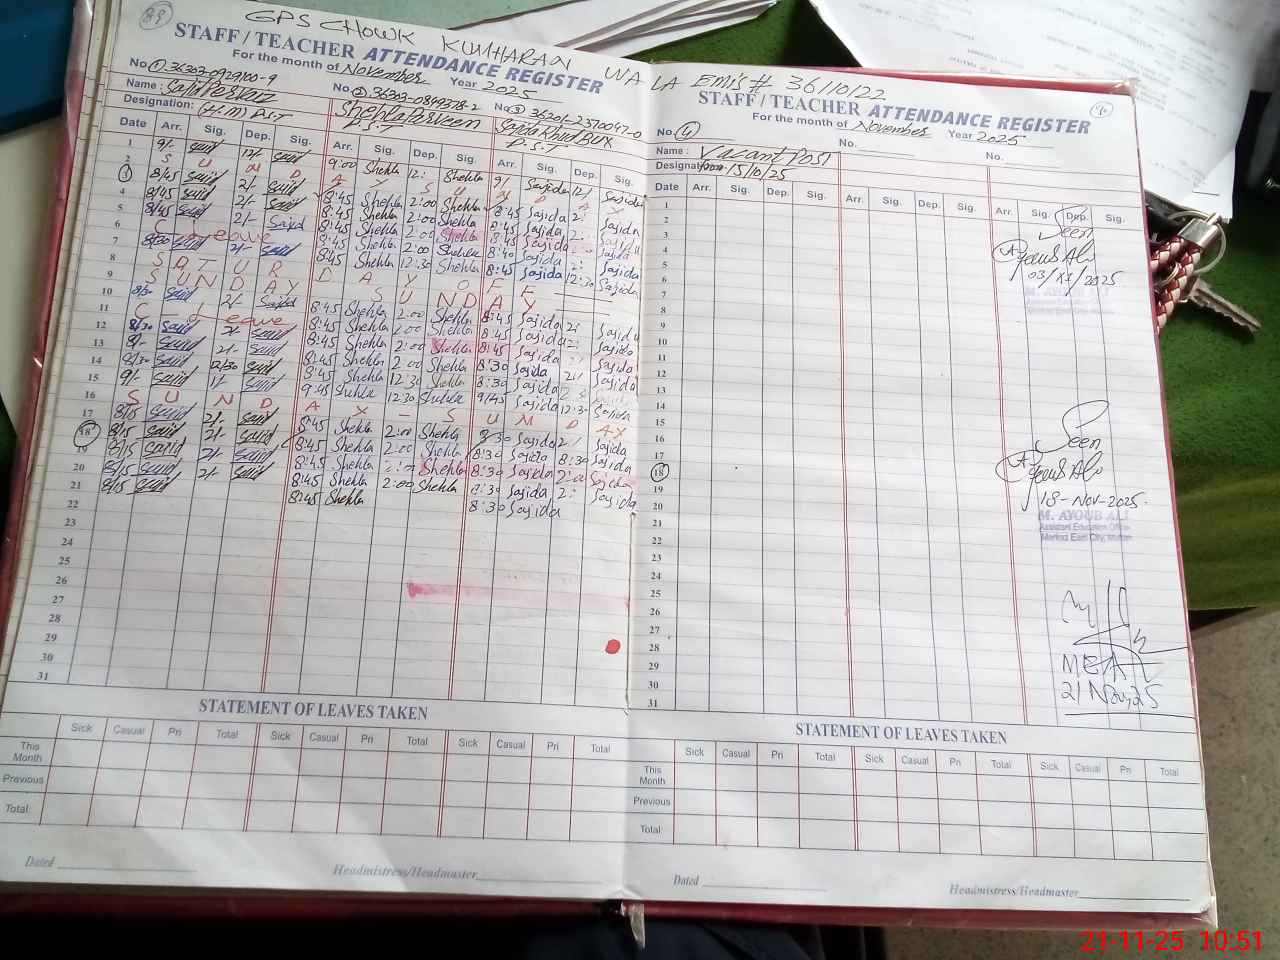 89
GPS CHOWK KUMHARAN WALA EMIS # 36110122
STAFF / TEACHER ATTENDANCE REGISTER
For the month of November Year 2025
No. ① 36303-0929100-9 No. ② 36302-0849378-2 No. ③ 36201-2370047-0
Name : Safia Parvaiz Shehla Parveen Sajida Khud Bux
Designation: (H.M) P.S.T P.S.T P.S.T
Date Arr. Sig. Dep. Sig. Arr. Sig. Dep. Sig. Arr. Sig. Dep. Sig.
1 9/- 12/- 9:00 Shehla 12: Shehla 9/- Sajida 12/ Sajida
2 S U N D A Y S U N D A Y
3 8/45 2/- 8:45 Shehla 2:00 Shehla 8:45 Sajida 2: Sajida
4 8/45 2/- 8:45 Shehla 2:00 Shehla 8:45 Sajida 2: Sajida
5 8/45 2/- 8:45 Shehla 2:00 Shehla 8:45 Sajida Sajida
6 C - Leave 8:45 Shehla 2:00 Shehla 8:40 Sajida 2: Sajida
7 8/30 2/- 8:45 Shehla 12:30 Shehla 8:45 Sajida 12:30 Sajida
8 S A T U R D A Y O F F
9 S U N D A Y S U N D A Y
10 8/30 2/- 8:45 Shehla 2:00 Shehla 8:45 Sajida 2: Sajida
C - Leave 8:45 Shehla 2:00 Shehla 8:45 Sajida 2: Sajida
12 8/30 2/- 8:45 Shehla 2:00 Shehla 8:45 Sajida Sajido
13 8/- 2/- 8:45 Shehla 2:00 Shehla 8:30 Sajida 2: Sajida
14 8/30 12/30 8:45 Shehla 12:30 Shehla 8:30 Sajida Sajida
15 9/- 1/- 9:45 Shehla 12:30 Shehla 9/45 Sajida 12:30 Sajida
16 S U N D A Y - S U N D A Y
17 8/15 2/- 8:45 Shehla 2:00 Shehla 8:30 Sajida 2/ Sajida
18 8/15 2/- 8:45 Shehla 2:00 Shehla 8:30 Sajida 8:30 Sajida
19 8/15 2/- 8:45 Shehla Shehla 8:30 Sajida 2:00 Sajida
20 8/15 2/- 8:45 Shehla 2:00 Shehla 8:30 Sajida 2: Sajida
21 8/15 8:45 Shehla 8:30 Sajida
22
23
24
25
26
27
28
29
30
31
STATEMENT OF LEAVES TAKEN
Sick Casual Pri Total Sick Casual Pri Total Sick Casual Pri Total
This Month
Previous
Total:
Dated Headmistress/Headmaster
90
STAFF / TEACHER ATTENDANCE REGISTER
For the month of November Year 2025
No. ④ No. No.
Name : Vacant Post
Designation: from 15/10/25
Date Arr. Sig. Dep. Sig. Arr. Sig. Dep. Sig. Arr. Sig. Dep. Sig.
1
2
3 Seen
4
5 03/XI/2025
6
7
8
9
10
11
12
13
14
15
16 Seen
17
18
19 18-Nov-2025.
20 M. AYOUB ALI
21 Assistant Education Officer
22 Markaz East City, Multan
23
24
25
26
27
28
29 MEA
30 21 Nov,25
31
STATEMENT OF LEAVES TAKEN
Sick Casual Pri Total Sick Casual Pri Total Sick Casual Pri Total
This Month
Previous
Total:
Dated Headmistress/Headmaster
21-11-25 10:51